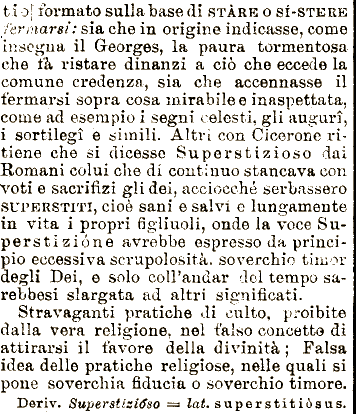 tio] formato sulla base di STÀRE o SÍ-STERE
fermarsi: sia che in origine indicasse, come
insegna il Georges, la paura tormentosa
che fà ristare dinanzi a ciò che eccede la
comune credenza, sia che accennasse il
fermarsi sopra cosa mirabile e inaspettata,
come ad esempio i segni celesti, gli augurî,
i sortilegî e simili. Altri con Cicerone ri-
tiene che si dicesse Superstizioso dai
Romani colui che di continuo stancava con
voti e sacrifizi gli dei, acciocché serbassero
SUPERSTITI, cioè sani e salvi e lungamente
in vita i propri figliuoli, onde la voce Su-
perstizióne avrebbe espresso da princi-
pio eccessiva scrupolosità. soverchio timor
degli Dei, e solo coll'andar del tempo sa-
rebbesi slargata ad altri significati.
Stravaganti pratiche di culto, proibite
dalla vera religione, nel falso concetto di
attirarsi il favore della divinità; Falsa
idea delle pratiche religiose, nelle quali si
pone soverchia fiducia o soverchio timore.
Deriv. Superstizióso = lat. superstitiósus.